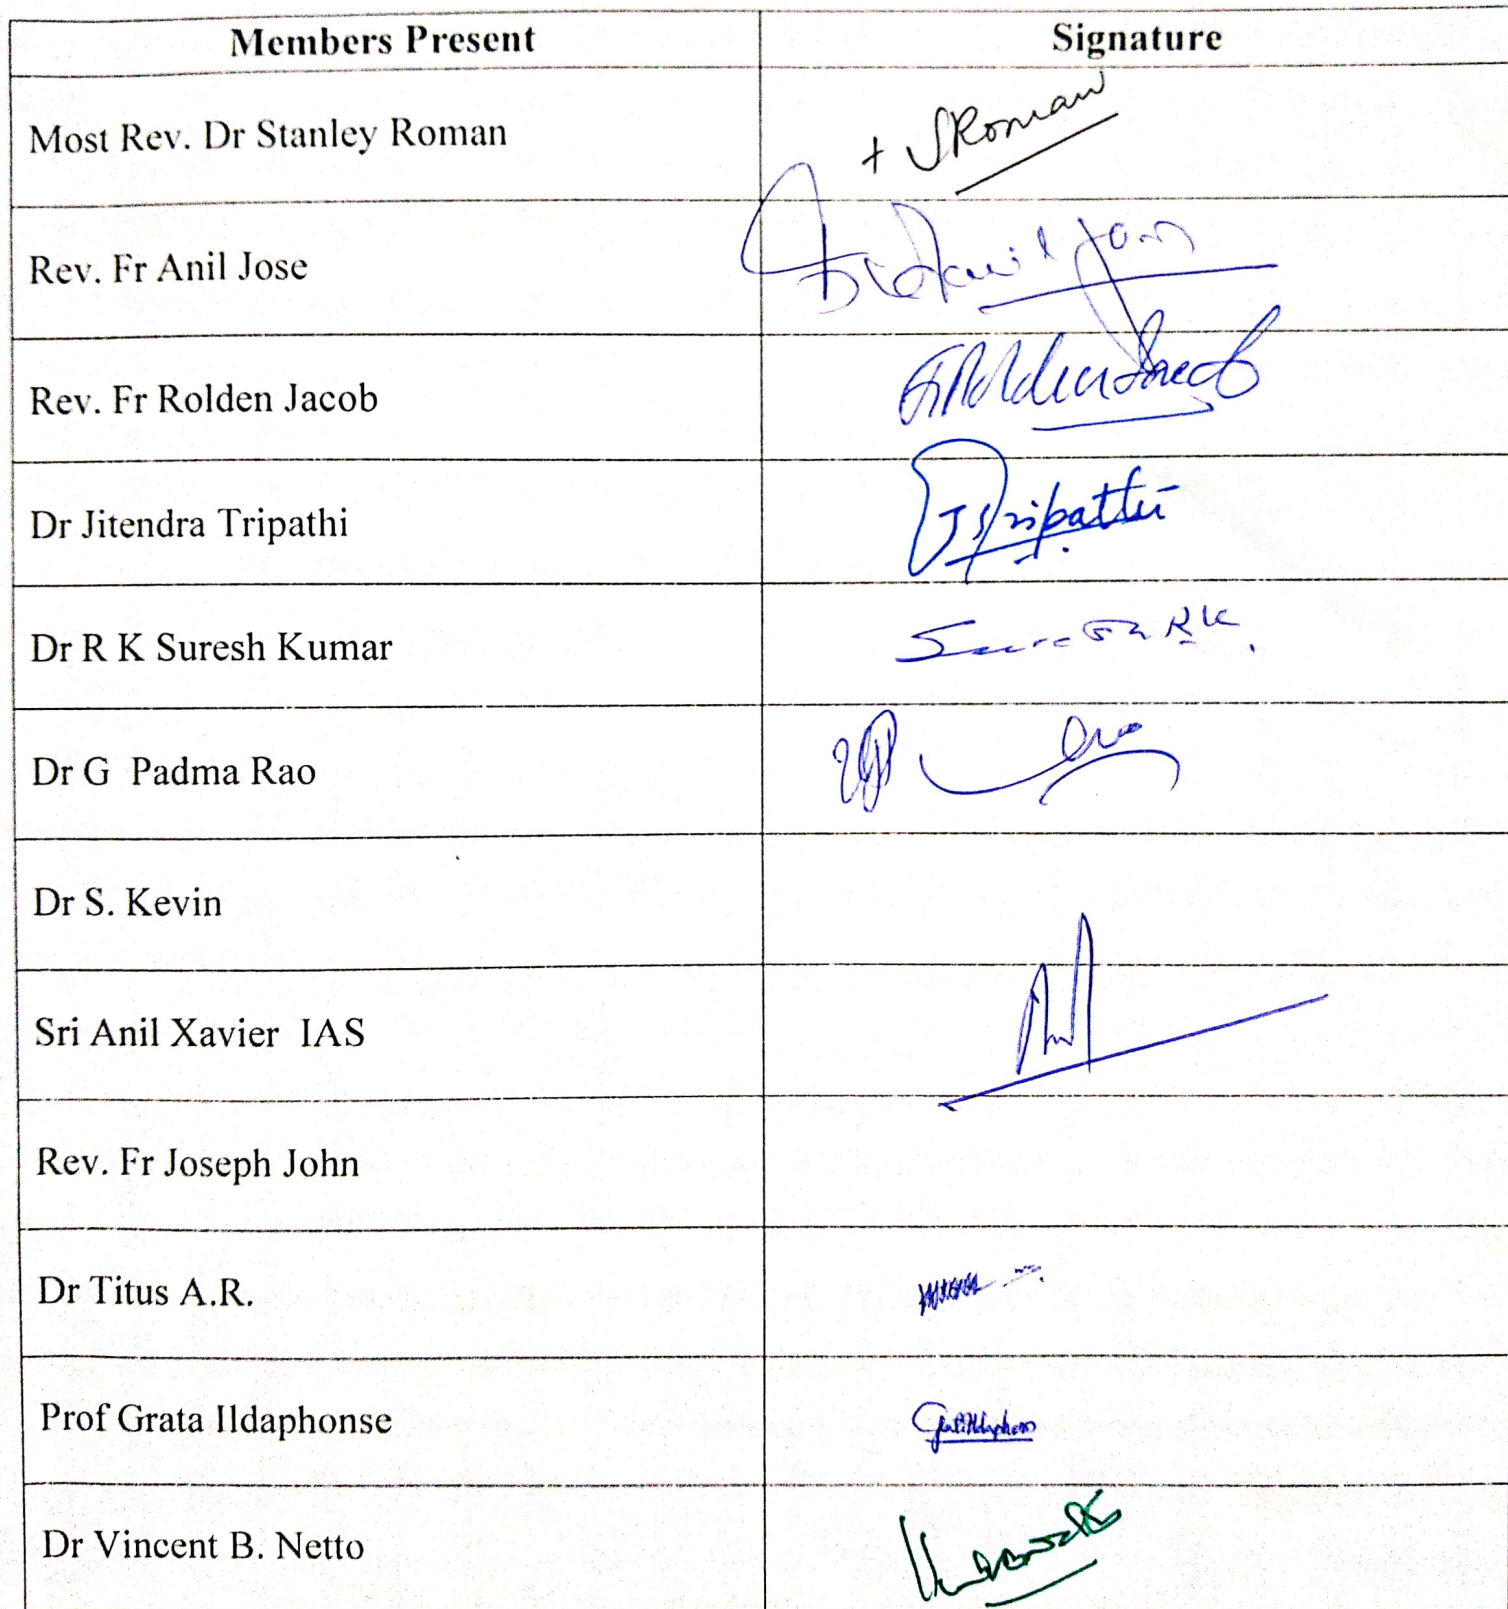 Members Present Signature
Most Rev. Dr Stanley Roman + SRoman
Rev. Fr Anil Jose
Rev. Fr Rolden Jacob Fr Rolden Jacob
Dr Jitendra Tripathi JTripathi
Dr R K Suresh Kumar Suresh RK.
Dr G Padma Rao
Dr S. Kevin
Sri Anil Xavier IAS
Rev. Fr Joseph John
Dr Titus A.R.
Prof Grata Ildaphonse
Dr Vincent B. Netto